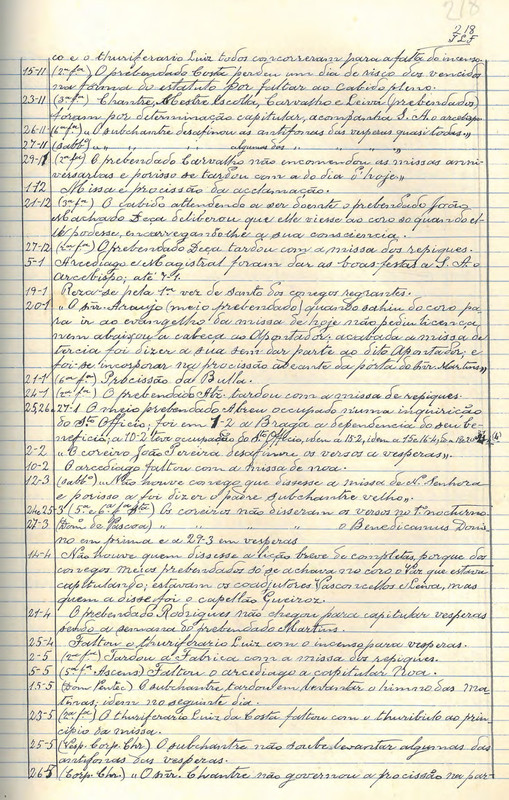 218
218
F.L.F
co e o thuriferario Luiz todos concorreram para a falta do incenso.
15-11 (2ª fª) O prebendado Costa perdeu um dia de risco dos vencidos
na forma do estatuto por faltar ao cabido pleno.
23-11 (3ª fª) Chantre, Mestre Escolla, Carvalho e Leiva (prebendados)
fôram por determinação capitular, acompanhar S. A. o arcebispo
26-11 (6ª fª) "O subchantre desafinou as antifonas das vesperas quasi todas."
27-11 (sabbº) " " " algumas dos " " "
29-11 (2ª fª) O prebendado Carvalho não incomendou as missas anni-
versarias e porisso se tardou com a do dia d'hoje."
1-12 Missa e procissão da acclamação.
21-12 (3ª fª) O cabido attendendo a ser doente o prebendado João
Machado Deça deliberou que elle viesse ao coro so quando el-
le podesse, encarregando-lhe a sua consciencia.
27-12 (2ª fª) O prebendado Deça tardou com a missa dos repiques.
5-1 Arcediago e Magistral foram dar as boas festas a S. A. o
arcebispo; até 7-1.
19-1 Reza-se pela 1ª vez de santo dos conegos regrantes.
20-1 "O snr. Araujo (meio prebendado) quando sahiu do coro pa-
ra ir ao evangelho da missa de hoje não pediu licença,
nem abaixou a cabeça ao Apontador; acabada a missa de
tercia foi dizer a sua sem dar parte ao dito Apontador, e
foi se incorporar na procissão àcante da porta do Snr. Martins"
21-1 (6ª fª) Procissão da Bulla.
24-1 (2ª fª) O prebendado Abr. tardou com a missa de repiques.
25 26 e 27-1 O meio prebendado Abreu occupado n'uma inquirição
do Stº Officio; foi em 1-2 a Braga a dependencia do seu be-
neficio; a 10-2 teve occupação do Stº Officio, idem a 15-2, idem a 15 e 16-4;
2-2 "O coreiro João Pereira desafinou os versos a vesperas".
10-2 O arcediago faltou com a missa de noa.
12-3 (sabbº) "Não houve conego que dissesse a missa de Nª Senhora
e porisso a foi dizer o padre subchantre velho".
24 e 25-3 (5ª e 6ª fª Stª) Os coreiros não disseram os versos no 1º nocturno.
27-3 (Domº de Pascoa) " " " " o Benedicamus Domi-
no em prima e a 29-3 em vesperas
14-4 Não houve quem dissesse a lição breve de completas, porque dos
conegos meios prebendados só se achava no coro o Paz que estava
capitulando; estavam os coadjutores Vasconcellos e Leiva, mas
quem a disse foi o capellão Gueiroz.
21-4 O prebendado Rodrigues não chegou para capitular vesperas
sendo a semana do prebendado Martins.
25-4 Faltou o thuriferario Luiz com o incenso para vesperas.
2-5 (2ª fª) Tardou a Fabrica com a missa dos repiques.
5-5 (5ª fª Ascens) Faltou o arcediago a capitular Noa.
15-5 (Dom. Pentec) O subchantre tardou em levantar o himno das ma-
tinas; idem no seguinte dia.
23-5 (2ª fª) O thuriferario Luiz da Costa faltou com o thuribulo ao prin-
cipio da missa.
25-5 (Vesp. Corp. Chr.) O subchantre não soube levantar algumas das
antifonas das vesperas.
26-5 (Corp. Chr.) "O snr. Chantre não governou a procissão na par-